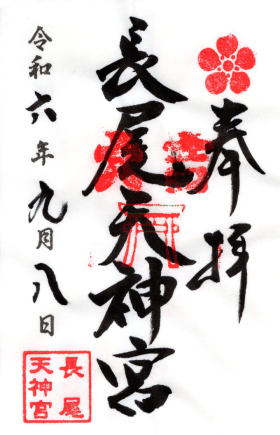 奉拝
長尾天神宮
令和六年九月八日
長尾
天神宮